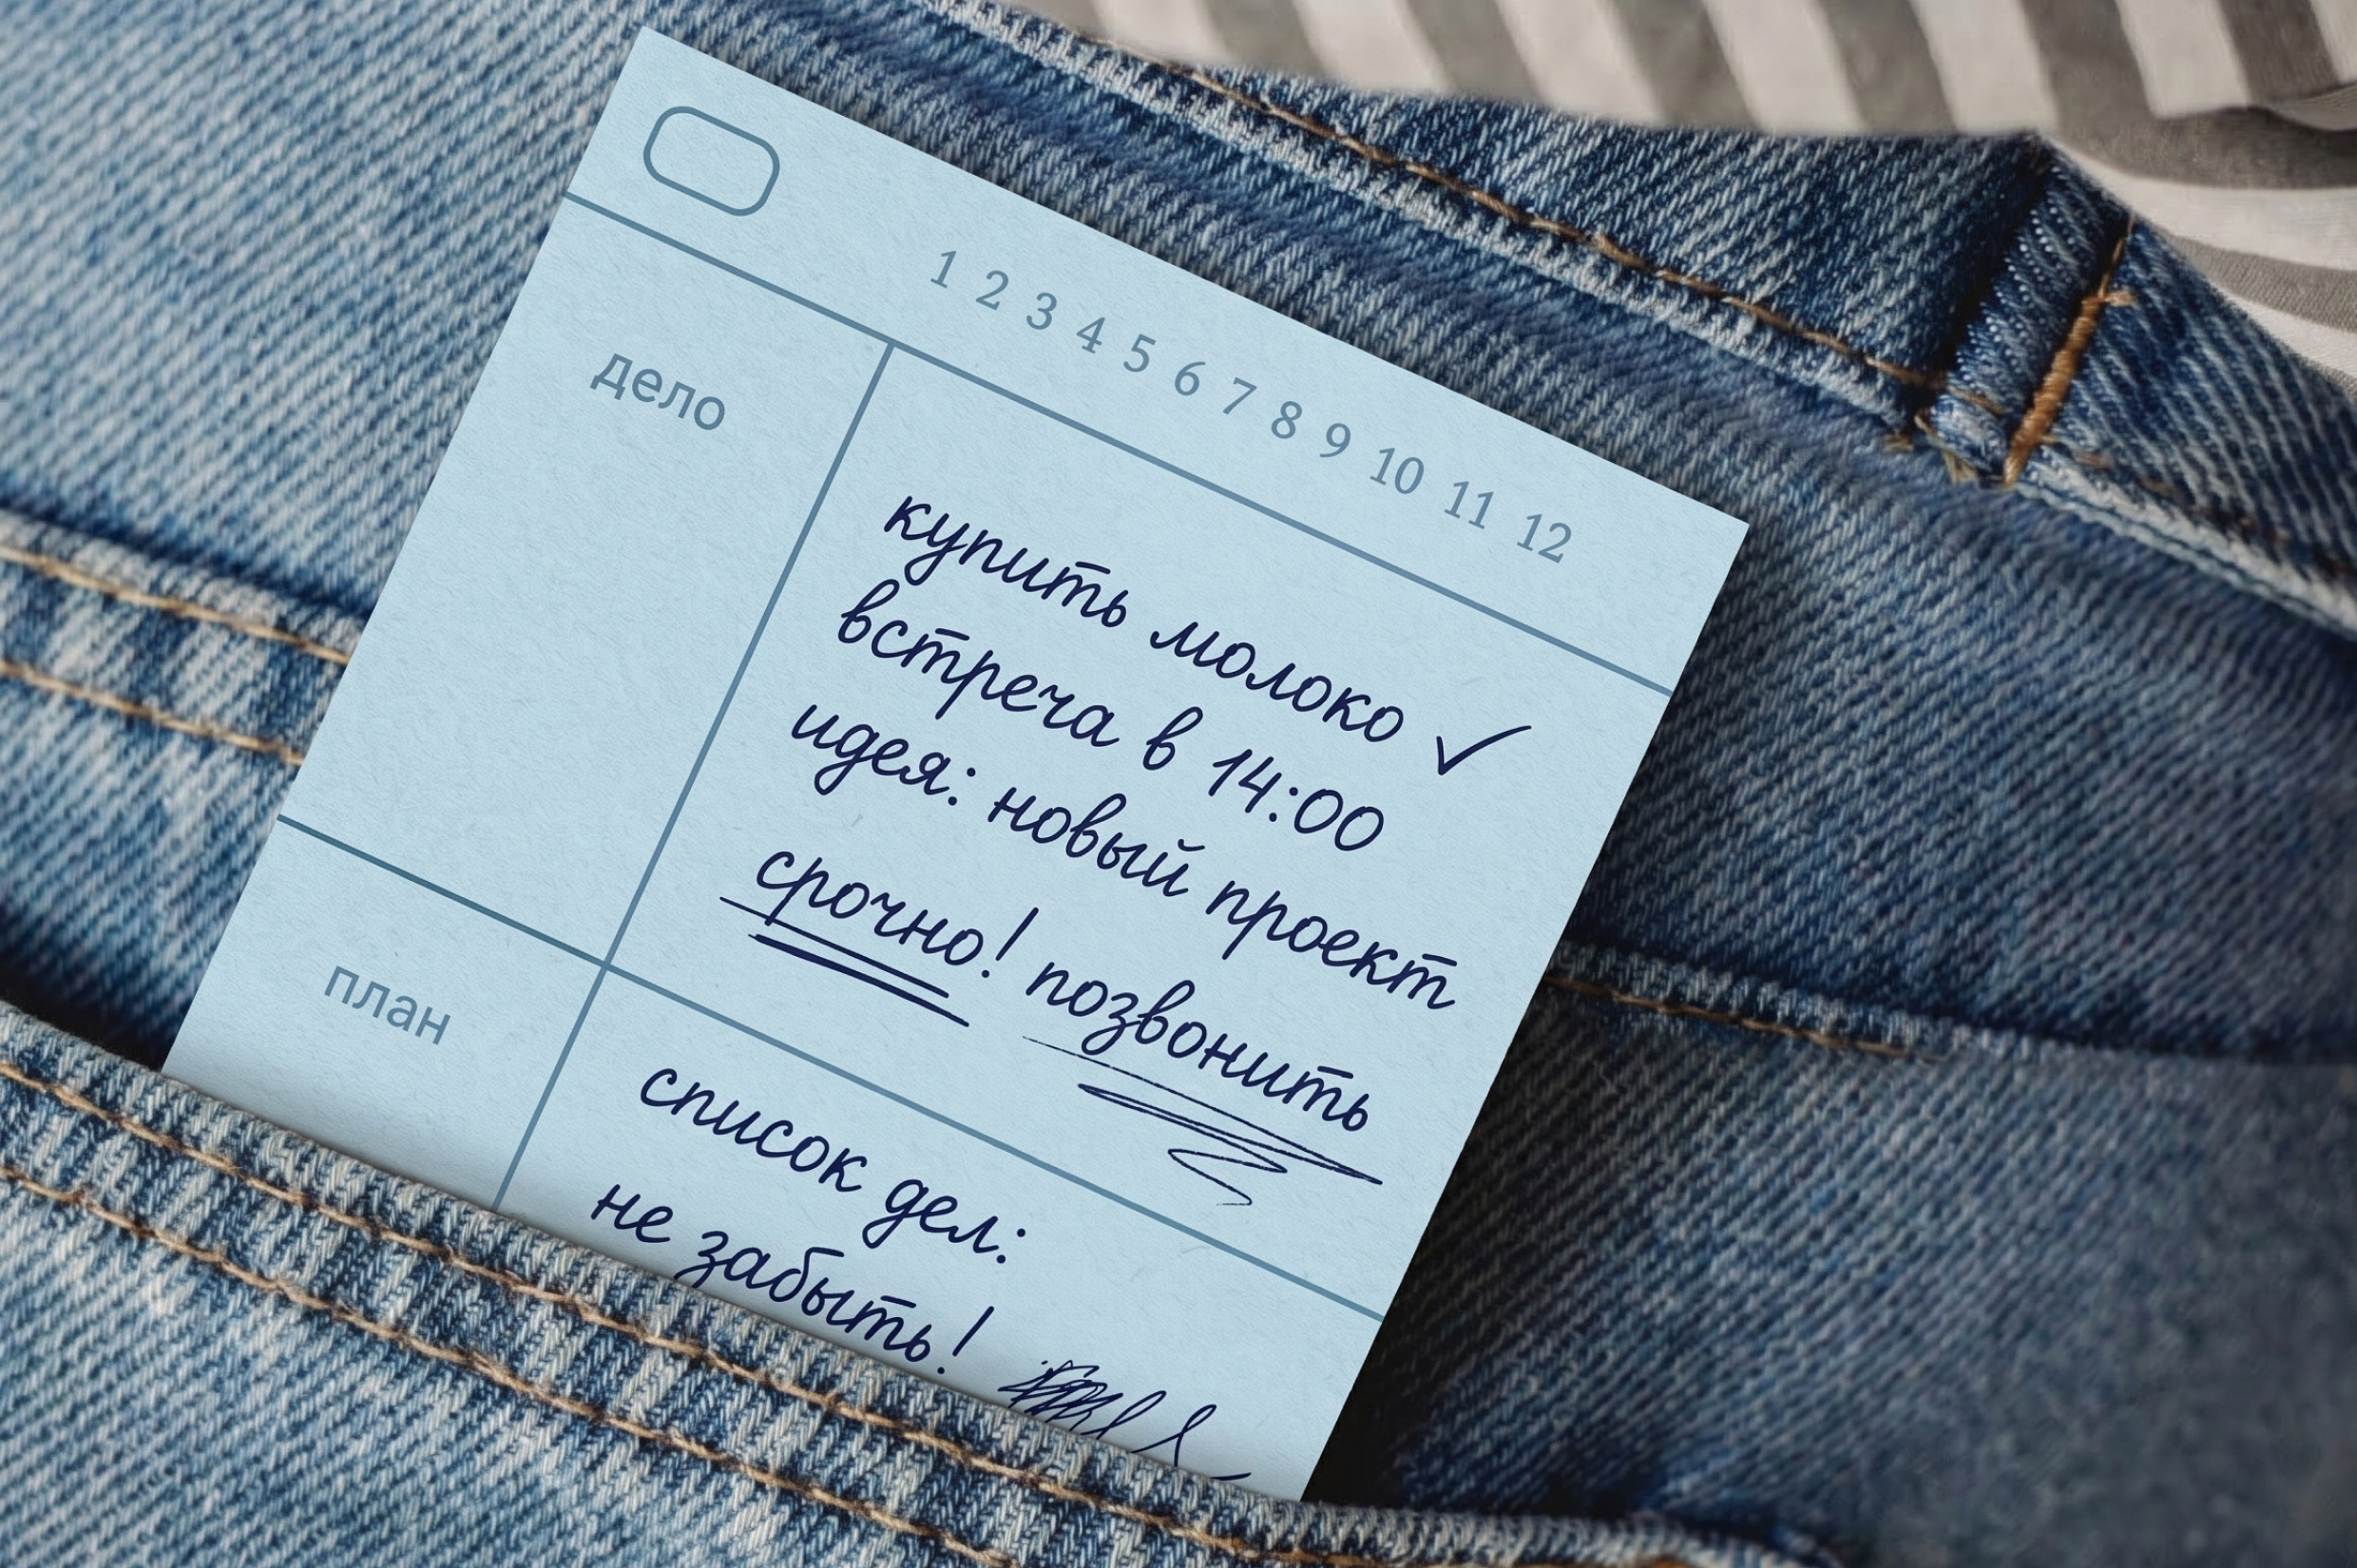 1 2 3 4 5 6 7 8 9 10 11 12
дело
купить молоко ✓
встреча в 14:00
идея: новый проект
срочно! позвонить
план
список дел:
не забыть!